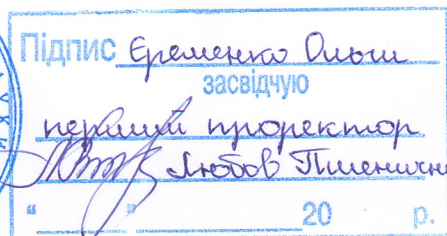 Підпис Єременко Ольги
засвідчую
перший проректор
Любов Пшенична
“ ” 20 р.